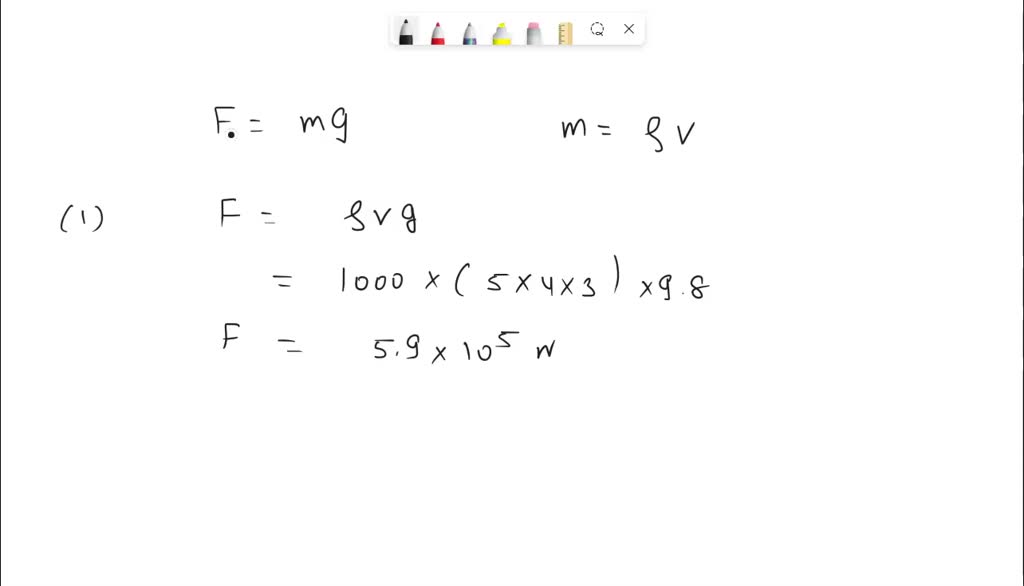 F. = mg m = ρv
(1) F = ρvg
= 1000 × (5×4×3) × 9.8
F = 5.9 × 10⁵ N